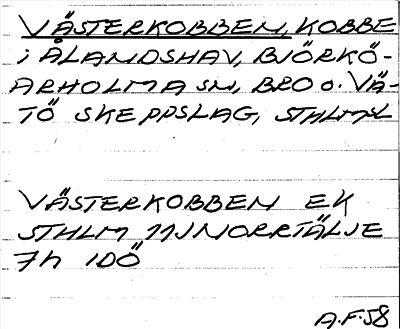 VÄSTERKOBBEN, KOBBE
i ÅLANDSHAV, BJÖRKÖ-
ARHOLMA SN, BRO o. VÄ-
TÖ SKEPPSLAG, STHLMS L
VÄSTERKOBBEN EK
STHLM 11J NORRTÄLJE
7h IDÖ
A.F.58